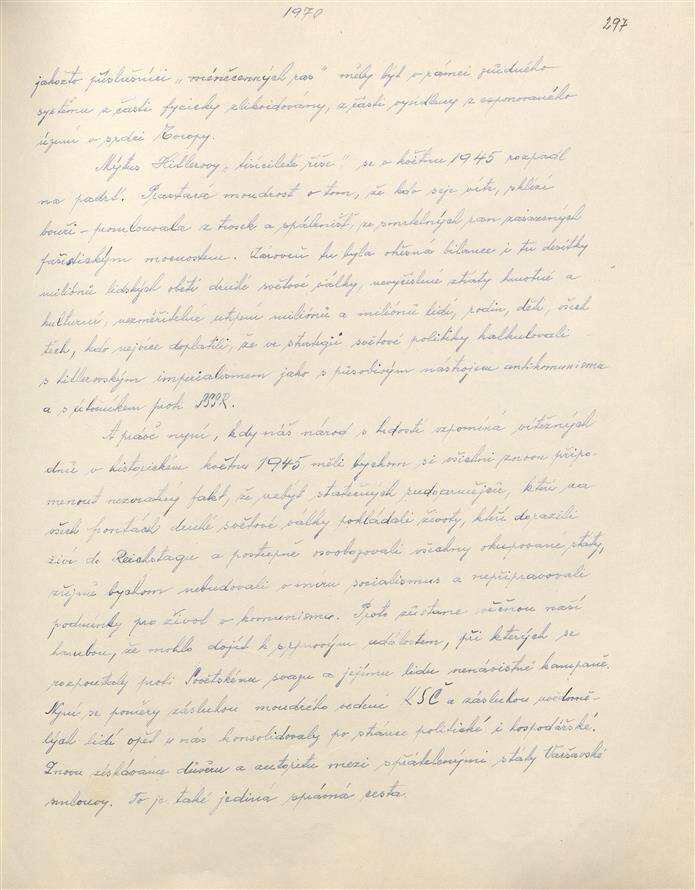 1970
297
jakožto příslušníci „méněcenných ras" měly být v rámci zrůdného
systému z části fyzicky zlikvidovány, a z části vysídleny z exponovaného
území v srdci Evropy.
Mýtus Hitlerovy „tisícileté říše" se v květnu 1945 rozpadl
na padrť. Prastará moudrost o tom, že kdo seje vítr, sklízí
bouři - promlouvala z trosek a spálenišť, ze smrtelných ran zasazených
fašistickým mocnostem. Zároveň tu byla otřesná bilance i tu desítky
miliónů lidských obětí druhé světové války, nevyčíslené ztráty hmotné a
kulturní, nezměřitelné utrpení miliónů a miliónů lidí, rodin, dětí, všech
těch, kdo nejvíce doplatili, že ve strategii světové politiky kalkulovali
s hitlerovským imperialismem jako s působivým nástrojem antikomunismu
a s útočníkem proti SSSR.
A právě nyní, kdy náš národ s hrdostí vzpomíná vítězných
dnů v historickém květnu 1945 měli bychom si všichni znovu připo-
menout nezvratný fakt, že nebýt statečných rudoarmějců, kteří na
všech frontách druhé světové války pokládali životy, kteří dorazili
živí do Reichstagu a postupně osvobozovali všechny okupované státy,
zřejmě bychom nebudovali v míru socialismus a nepřipravovali
podmínky pro život v komunismu. Proto zůstane věčnou naší
hanbou, že mohlo dojít k srpnovým událostem, při kterých se
rozpoutaly proti Sovětskému svazu a jejímu lidu nenávistné kampaně.
Nyní se poměry zásluhou moudrého vedení KSČ a zásluhou uvědomě-
lých lidí opět u nás konsolidovaly po stránce politické i hospodářské.
Znovu získáváme důvěru a autoritu mezi spřátelenými státy Varšavské
smlouvy. To je také jediná správná cesta.